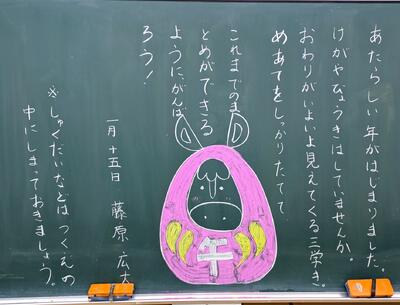 あたらしい年がはじまりました。
けがやびょうきはしていませんか。
おわりがいよいよ見えてくる三学き。
めあてをしっかりたてて
これまでのま
とめができる
ように、がんば
ろう！
一月十五日 藤原 広大
※しゅくだいなどはつくえの
中にしまっておきましょう。
午